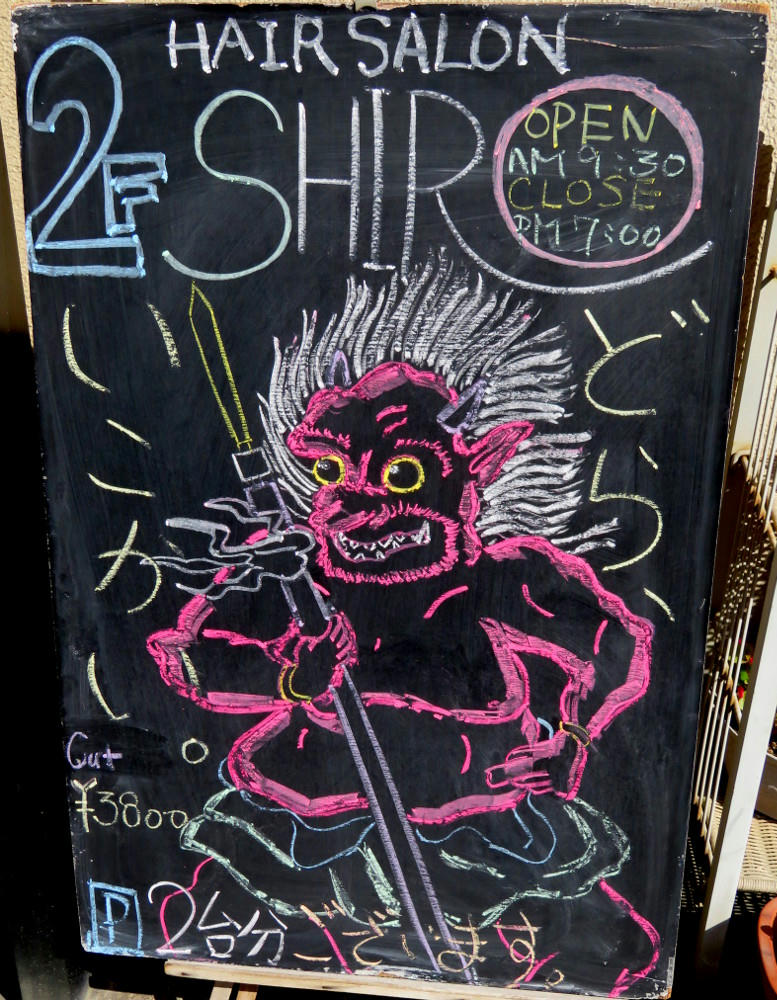 HAIR SALON
2F SHIRO
OPEN
AM 9:30
CLOSE
PM 7:00
どら、
いこかい。
Cut
¥3800
P 2台分ございます。